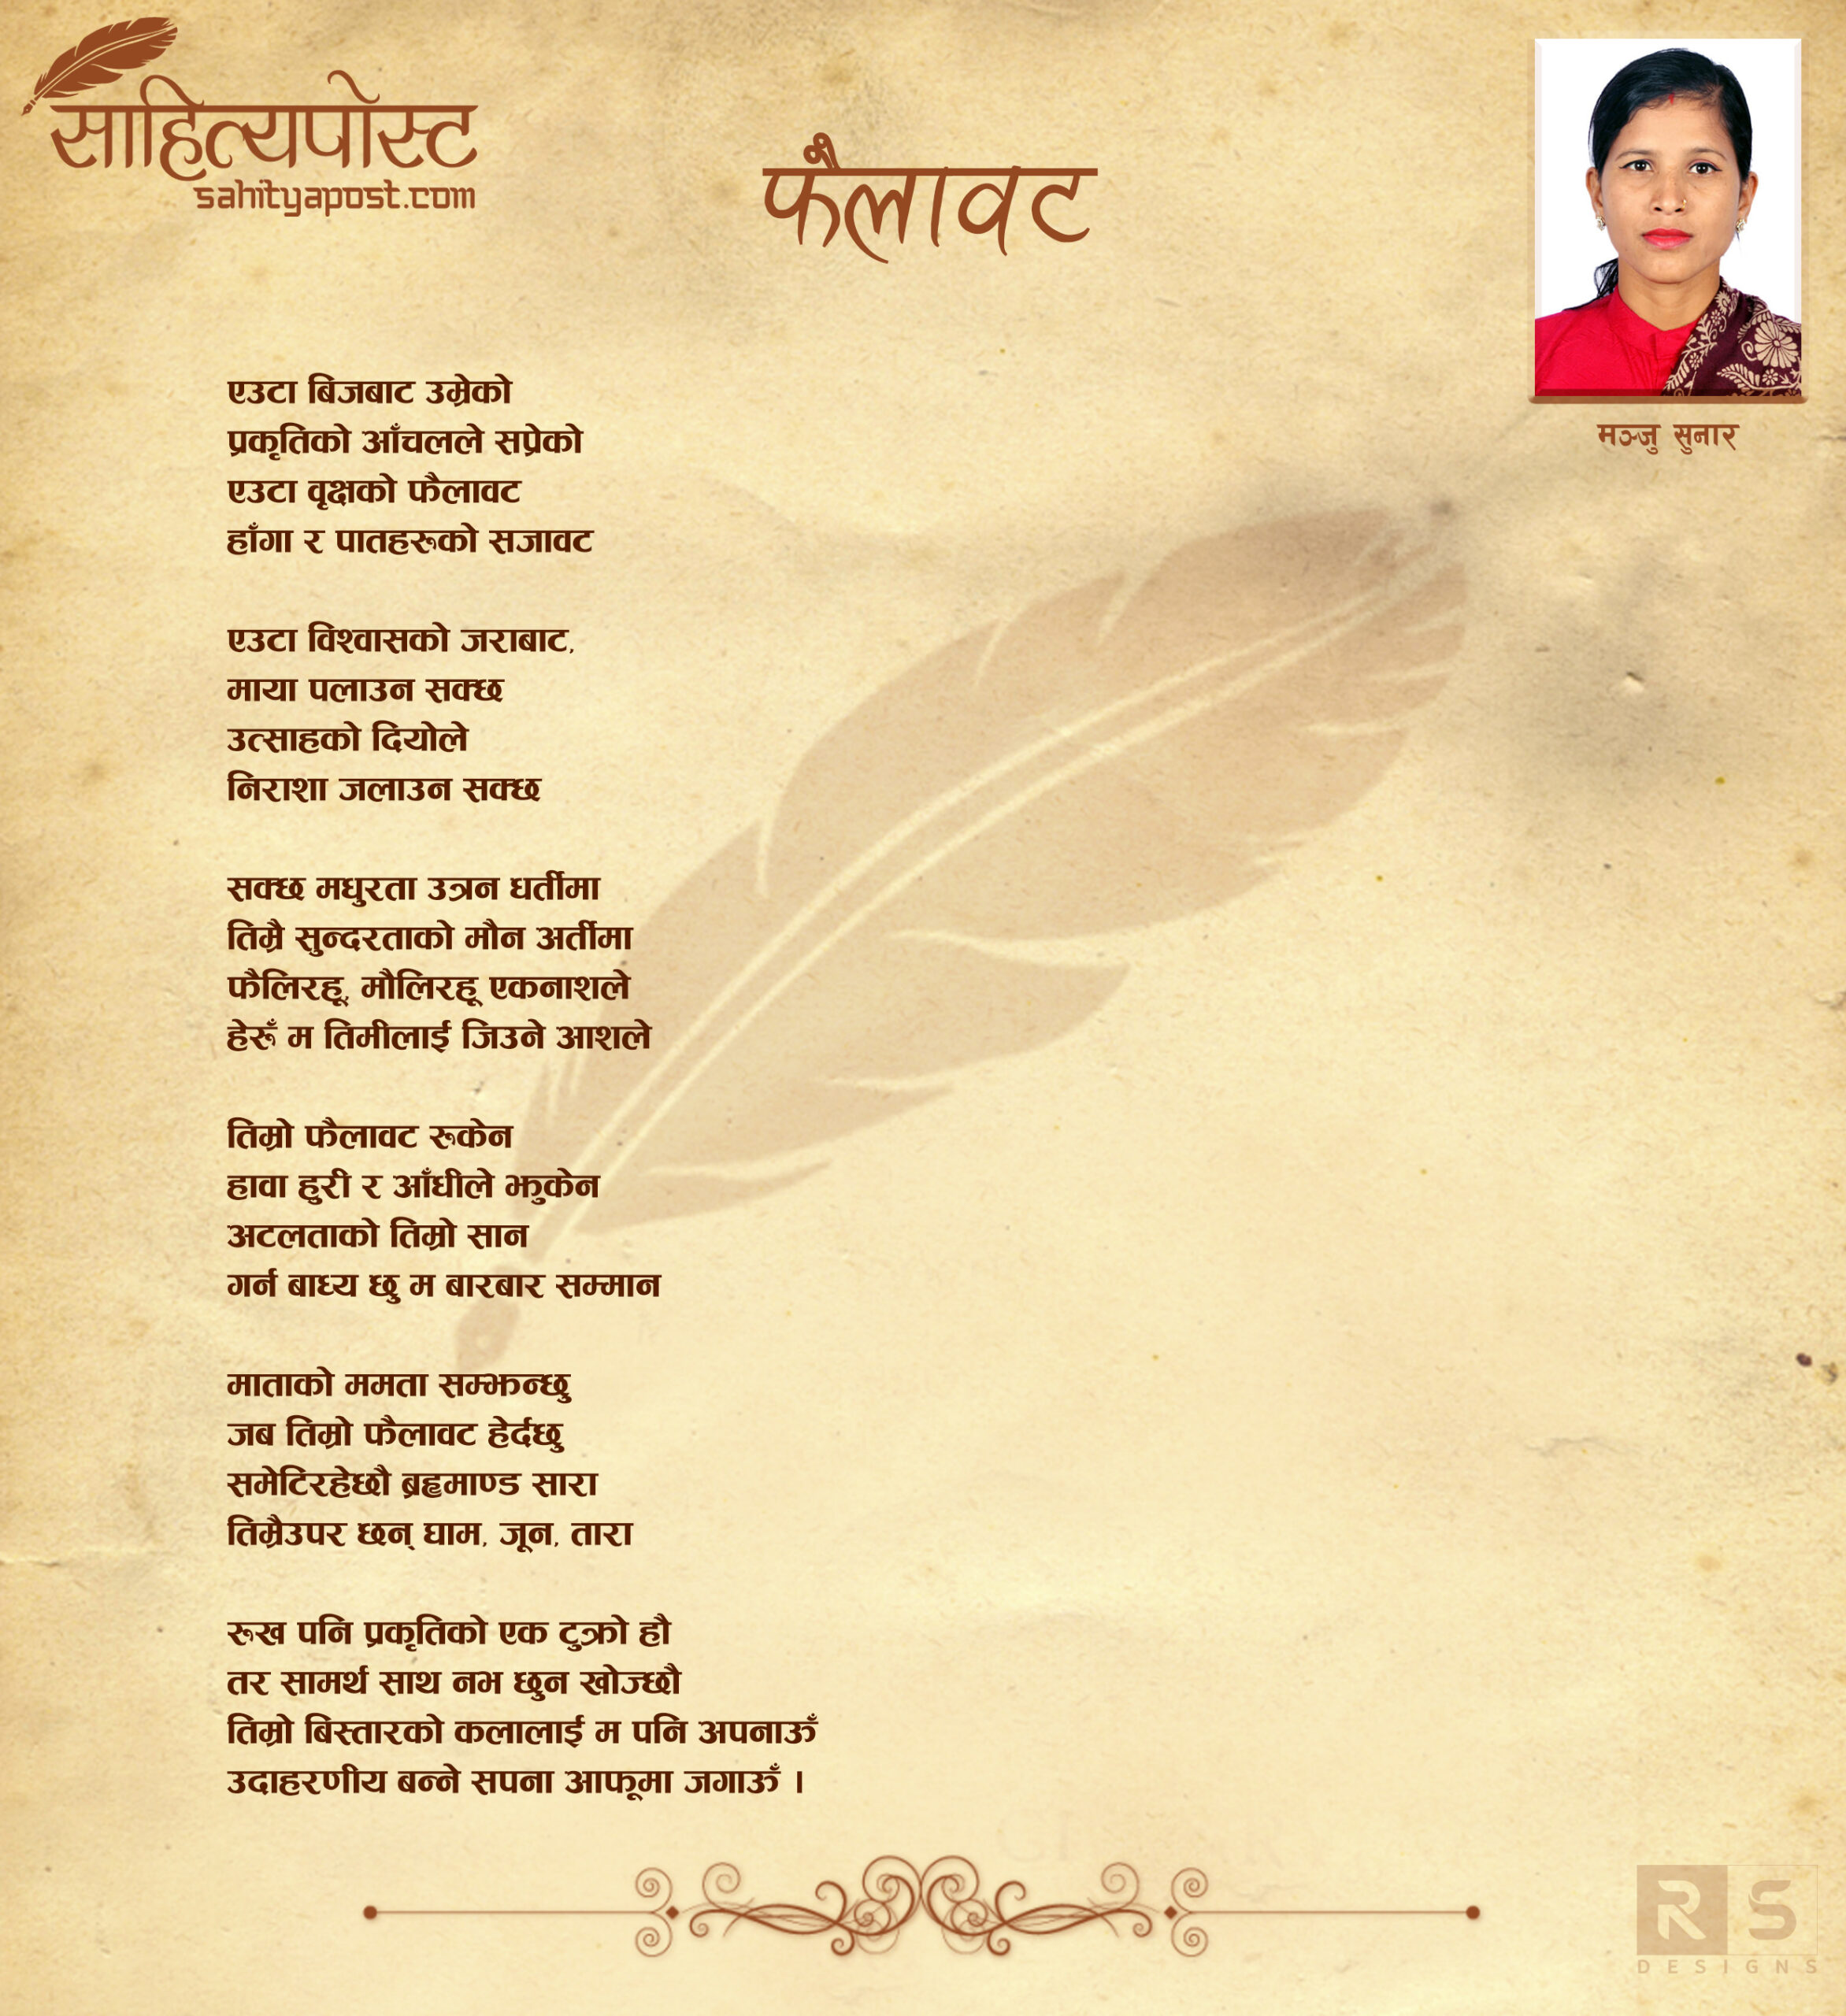 साहित्यपोस्ट
sahityapost.com
फैलावट
मञ्जु सुनार
एउटा बिजबाट उम्रेको
प्रकृतिको आँचलले सप्रेको
एउटा वृक्षको फैलावट
हाँगा र पातहरुको सजावट
एउटा विश्वासको जराबाट,
माया पलाउन सक्छ
उत्साहको दियोले
निराशा जलाउन सक्छ
सक्छ मधुरता उत्रन धर्तीमा
तिम्रै सुन्दरताको मौन अर्तीमा
फैलिरहू, मौलिरहू एकनाशले
हेरूँ म तिमीलाई जिउने आशले
तिम्रो फैलावट रुकेन
हावा हुरी र आँधीले झुकेन
अटलताको तिम्रो सान
गर्न बाध्य छु म बारबार सम्मान
माताको ममता सम्झन्छु
जब तिम्रो फैलावट हेर्दछु
समेटिरहेछौ ब्रह्माण्ड सारा
तिम्रैउपर छन् घाम, जून, तारा
रुख पनि प्रकृतिको एक टुक्रो हौ
तर सामर्थ साथ नभ छुन खोज्छौ
तिम्रो बिस्तारको कलालाई म पनि अपनाऊँ
उदाहरणीय बन्ने सपना आफूमा जगाऊँ ।
RS
DESIGNS